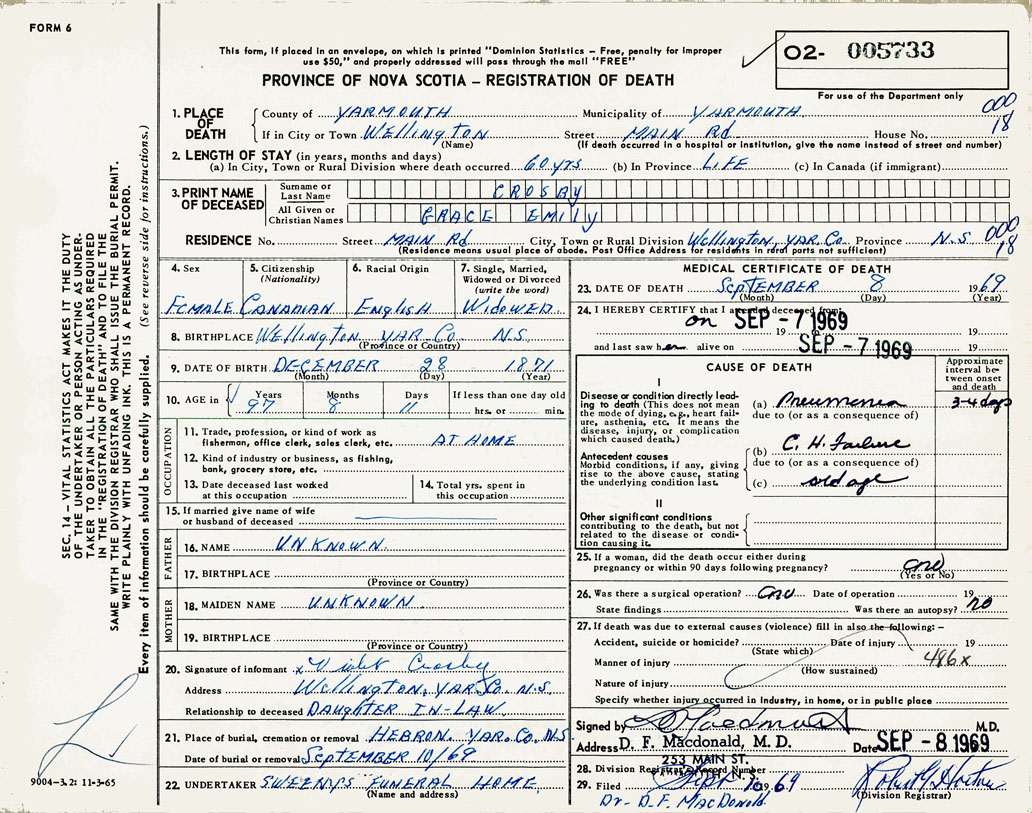 FORM 6
This form, if placed in an envelope, on which is printed "Dominion Statistics – Free, penalty for improper
use $50," and properly addressed will pass through the mail "FREE"
O2- 005733
PROVINCE OF NOVA SCOTIA – REGISTRATION OF DEATH
For use of the Department only
1. PLACE OF DEATH
County of YARMOUTH Municipality of YARMOUTH 000
If in City or Town Wellington Street MAIN Rd House No. 18
(Name) (If death occurred in a hospital or institution, give the name instead of street and number)
2. LENGTH OF STAY (in years, months and days)
(a) In City, Town or Rural Division where death occurred 60 yrs (b) In Province LIFE (c) In Canada (if immigrant)
3. PRINT NAME OF DECEASED
Surname or Last Name CROSBY
All Given or Christian Names GRACE EMILY
RESIDENCE No. Street MAIN Rd City, Town or Rural Division Wellington, YAR. Co. Province N.S 000
(Residence means usual place of abode. Post Office Address for residents in rural parts not sufficient) 18
4. Sex
Female
5. Citizenship (Nationality)
Canadian
6. Racial Origin
English
7. Single, Married, Widowed or Divorced (write the word)
Widowed
8. BIRTHPLACE Wellington YAR. Co N.S.
(Province or Country)
9. DATE OF BIRTH DECEMBER 28 1871
(Month) (Day) (Year)
10. AGE in Years Months Days If less than one day old
97 8 11 hrs. or min.
OCCUPATION
11. Trade, profession, or kind of work as
fisherman, office clerk, sales clerk, etc. AT HOME
12. Kind of industry or business, as fishing,
bank, grocery store, etc.
13. Date deceased last worked
at this occupation
14. Total yrs. spent in
this occupation
15. If married give name of wife
or husband of deceased
FATHER
16. NAME UNKNOWN
17. BIRTHPLACE
(Province or Country)
MOTHER
18. MAIDEN NAME UNKNOWN
19. BIRTHPLACE
(Province or Country)
20. Signature of informant x Violet Crosby
Address Wellington, YAR. Co. N.S.
Relationship to deceased DAUGHTER IN-LAW
21. Place of burial, cremation or removal HEBRON. YAR. Co. NS
Date of burial or removal September 10/69
22. UNDERTAKER SWEENYS FUNERAL HOME
(Name and address)
MEDICAL CERTIFICATE OF DEATH
23. DATE OF DEATH September 8 1969
(Month) (Day) (Year)
24. I HEREBY CERTIFY that I attended deceased from
on SEP - 7 1969
19 to 19
and last saw her alive on SEP - 7 1969 19
CAUSE OF DEATH
Approximate interval between onset and death
I
Disease or condition directly leading to death (This does not mean the mode of dying, e.g., heart failure, asthenia, etc. It means the disease, injury, or complication which caused death.)
(a) Pneumonia 3-4 days
due to (or as a consequence of)
Antecedent causes
Morbid conditions, if any, giving rise to the above cause, stating the underlying condition last.
(b) C. H. Failure
due to (or as a consequence of)
(c) old age
II
Other significant conditions
contributing to the death, but not related to the disease or condition causing it.
25. If a woman, did the death occur either during
pregnancy or within 90 days following pregnancy? no
(Yes or No)
26. Was there a surgical operation? no Date of operation 19
State findings Was there an autopsy? no
27. If death was due to external causes (violence) fill in also the following: –
Accident, suicide or homicide? Date of injury 19
(State which)
Manner of injury 486x
(How sustained)
Nature of injury
Specify whether injury occurred in industry, in home, or in public place
Signed by M.D.
Address D. F. Macdonald, M. D. Date SEP - 8 1969
253 MAIN ST.
28. Division Registrar's Record Number
29. Filed Sept 10 1969
(Division Registrar)
Dr- D.F. MacDonald
SEC. 14 – VITAL STATISTICS ACT MAKES IT THE DUTY
OF THE UNDERTAKER OR PERSON ACTING AS UNDER-
TAKER TO OBTAIN ALL THE PARTICULARS REQUIRED
IN THE "REGISTRATION OF DEATH" AND TO FILE THE
SAME WITH THE DIVISION REGISTRAR WHO SHALL ISSUE THE BURIAL PERMIT.
WRITE PLAINLY WITH UNFADING INK. THIS IS A PERMANENT RECORD.
Every item of information should be carefully supplied. (See reverse side for instructions.)
9004-3.2: 11-3-65